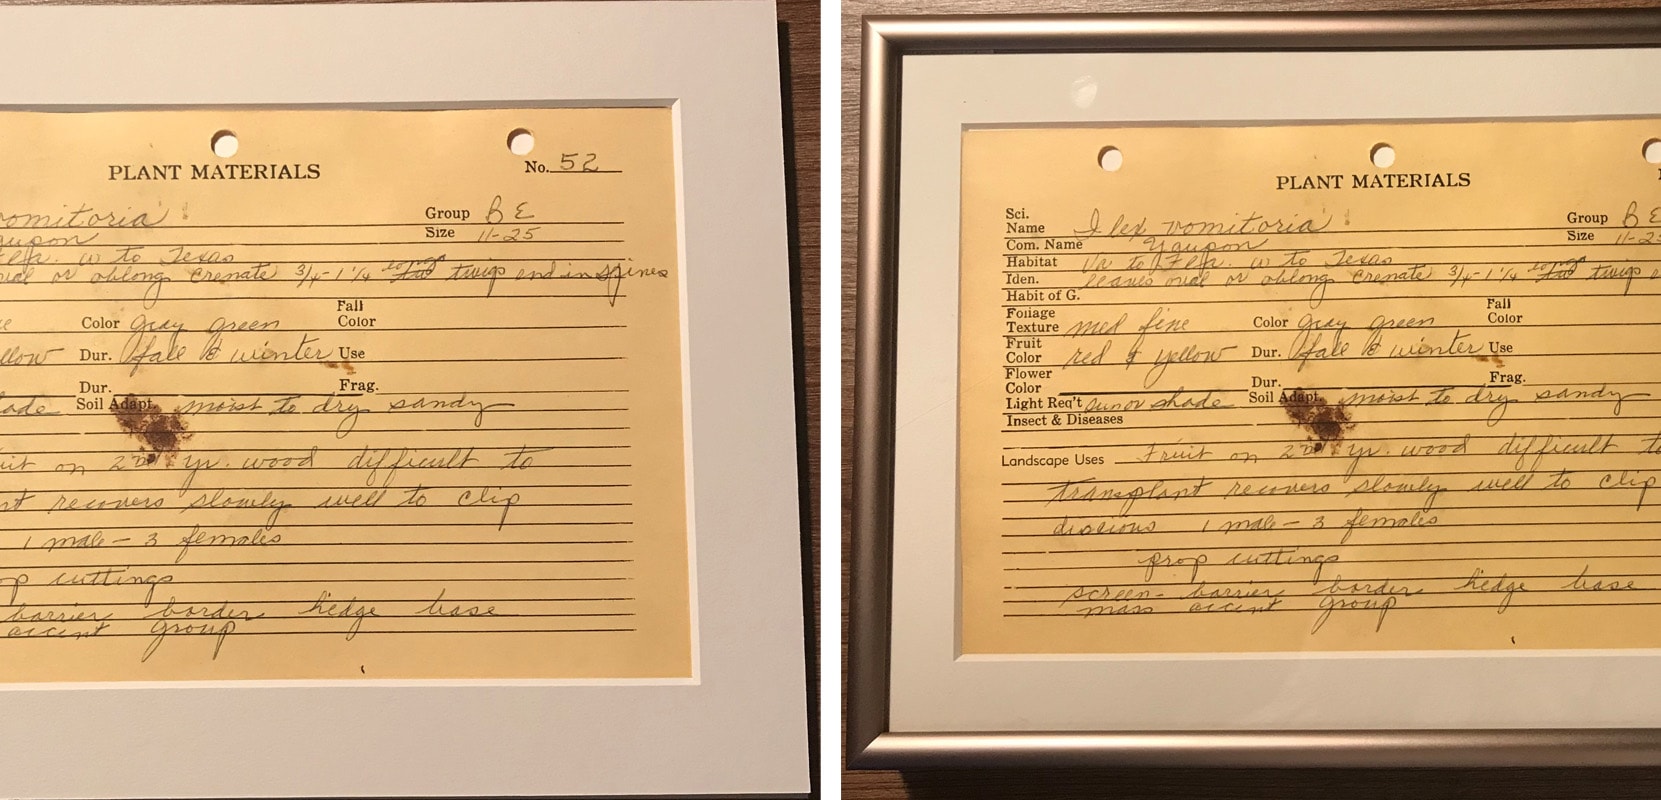 PLANT MATERIALS
No. 52
vomitoria
Group BE
Size 11-25
Yaupon
Fla. W to Texas
oval or oblong crenate 3/4-1 1/4 long twigs end in spines
Fall
Color gray green Color
yellow Dur. fall & winter Use
Dur. Frag.
shade Soil Adapt. moist to dry sandy
Fruit on 2nd yr. wood difficult to
recovers slowly well to clip
1 male - 3 females
prop cuttings
barrier border hedge base
accent group
PLANT MATERIALS
Sci.
Name Ilex vomitoria Group BE
Com. Name Yaupon Size 11-25
Habitat Va to Fla. W to Texas
Iden. leaves oval or oblong crenate 3/4-1 1/4 long twigs
Habit of G.
Foliage Fall
Texture med fine Color gray green Color
Fruit
Color red & yellow Dur. fall & winter Use
Flower
Color Dur. Frag.
Light Req't sun or shade Soil Adapt. moist to dry sandy
Insect & Diseases
Landscape Uses Fruit on 2nd yr. wood difficult to
transplant recovers slowly well to clip
discious 1 male - 3 females
prop cuttings
screen - barrier border hedge base
mass accent group